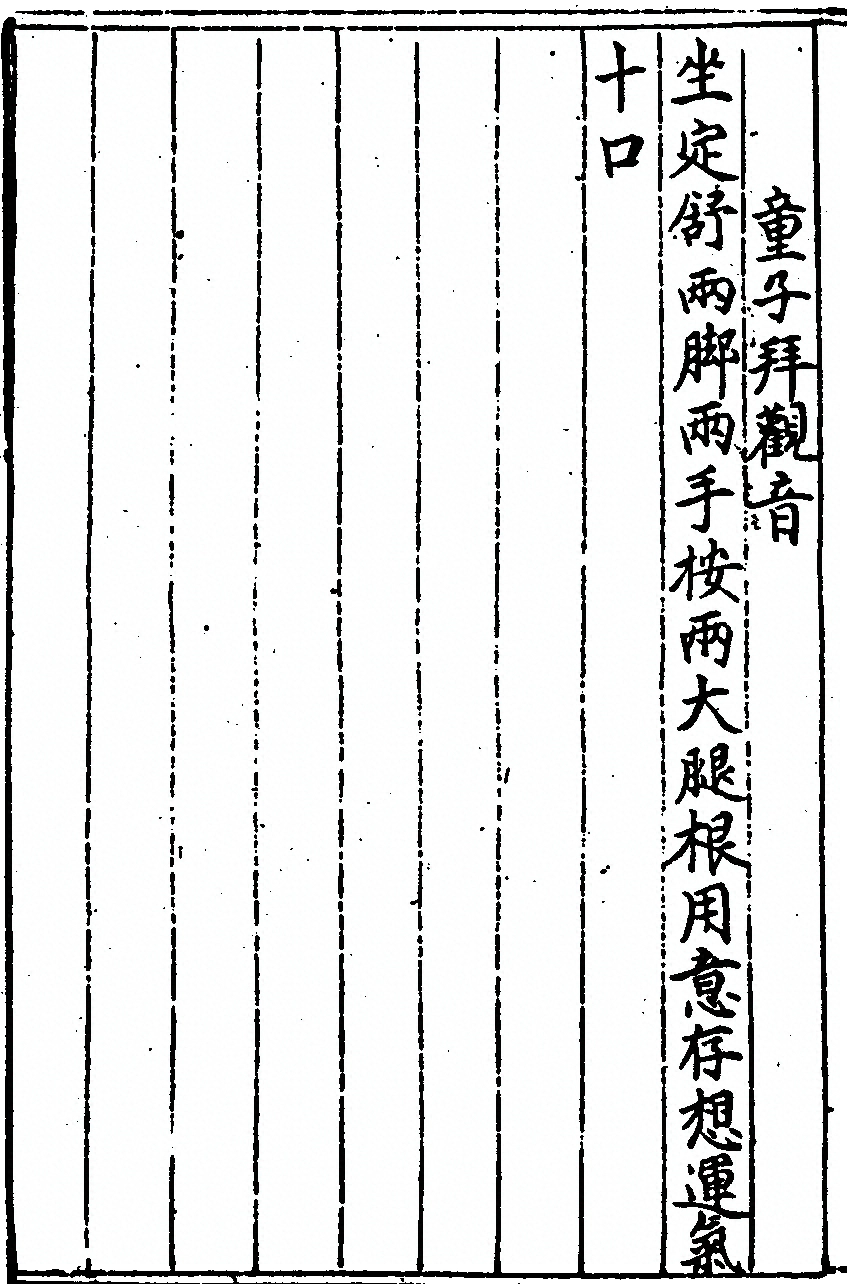 童子拜觀音
坐定舒兩脚兩手按兩大腿根用意存想運氣
十口